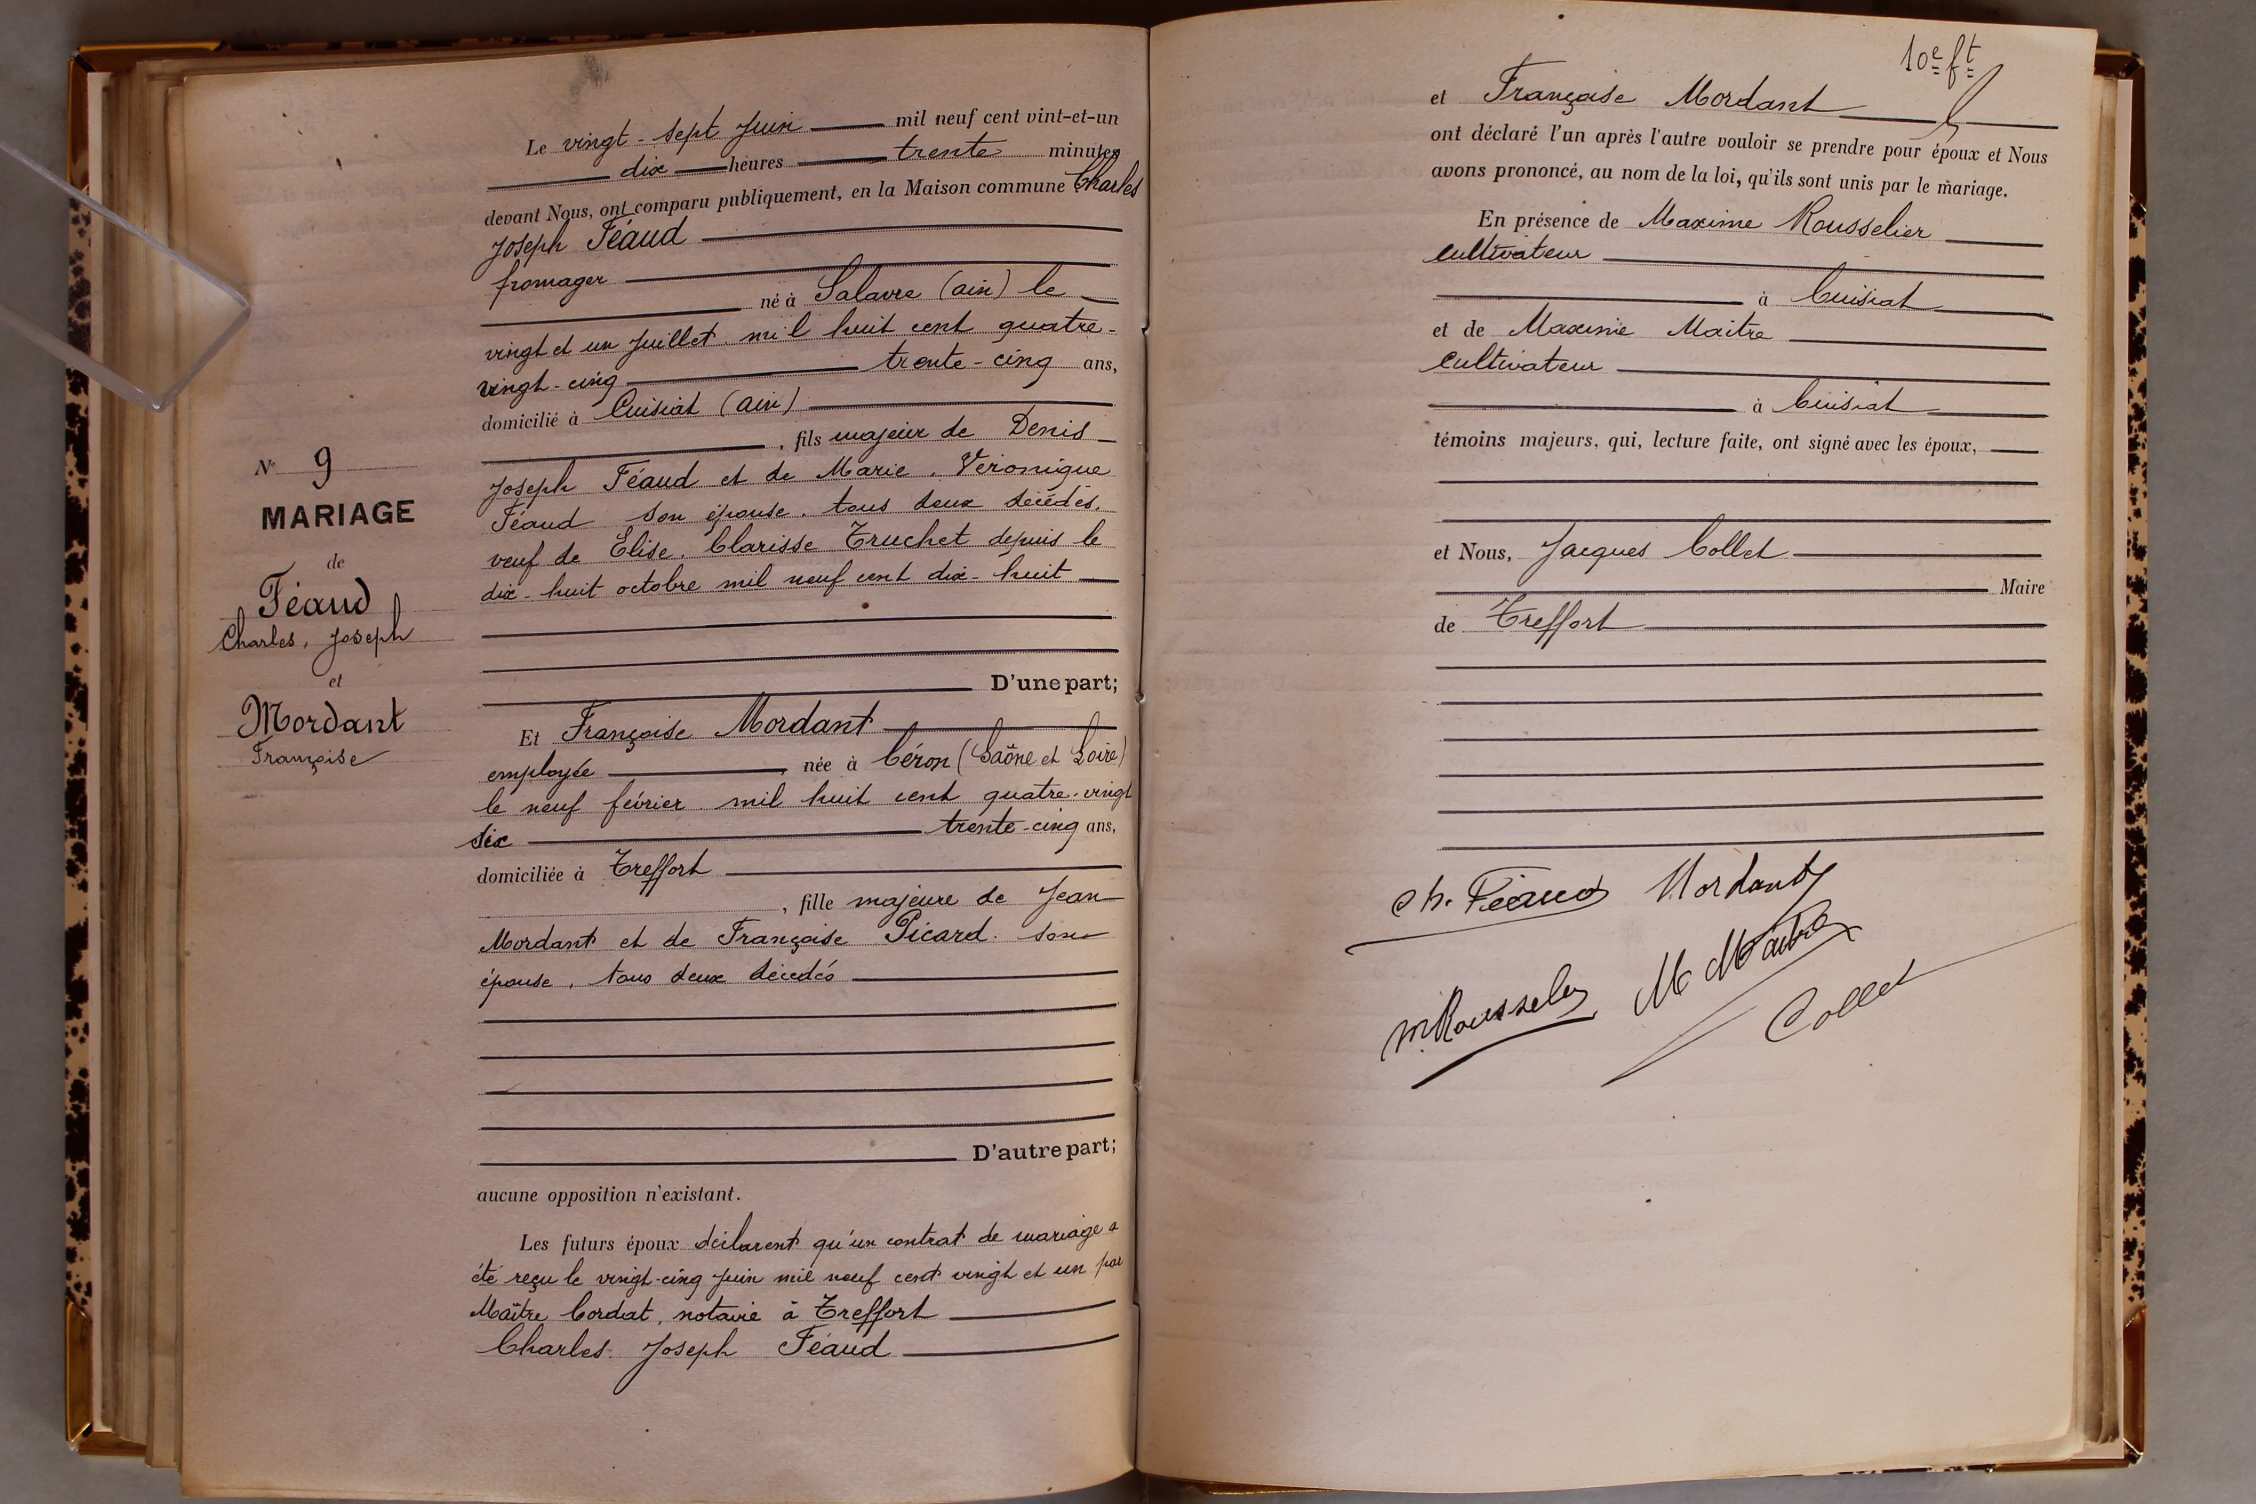 N° 9
MARIAGE
de
Féaud
Charles, Joseph
et
Mordant
Françoise
Le vingt-sept Juin mil neuf cent vint-et-un
dix heures trente minutes
devant Nous, ont comparu publiquement, en la Maison commune Charles
Joseph Féaud
fromager
né à Salavre (ain) le
vingt et un Juillet mil huit cent quatre-
vingt-cinq trente-cinq ans,
domicilié à Cuisiat (ain)
, fils majeur de Denis
Joseph Féaud et de Marie, Véronique
Féaud son épouse, tous deux décédés,
veuf de Elise, Clarisse Truchet depuis le
dix-huit octobre mil neuf cent dix-huit
D'une part;
Et Françoise Mordant
employée née à Céron (Saône et Loire)
le neuf février mil huit cent quatre-vingt
six trente-cinq ans,
domiciliée à Treffort
, fille majeure de Jean
Mordant et de Françoise Picard son
épouse, tous deux décédés
D'autre part;
aucune opposition n'existant.
Les futurs époux déclarent qu'un contrat de mariage a
été reçu le vingt-cinq Juin mil neuf cent vingt et un par
Maître Cordat, notaire à Treffort
Charles Joseph Féaud
10e ft
et Françoise Mordant
ont déclaré l'un après l'autre vouloir se prendre pour époux et Nous
avons prononcé, au nom de la loi, qu'ils sont unis par le mariage.
En présence de Maxime Rousselier
cultivateur
à Cuisiat
et de Maxime Maitre
cultivateur
à Cuisiat
témoins majeurs, qui, lecture faite, ont signé avec les époux,
et Nous, Jacques Collet
Maire
de Treffort
Ch. Féaud Mordant
M Rousselier M Maitre
Collet